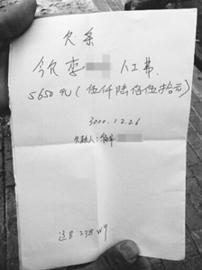 欠条
今欠李 人工费
5650元(伍仟陆佰伍拾元)
2000.12.26
欠款人: